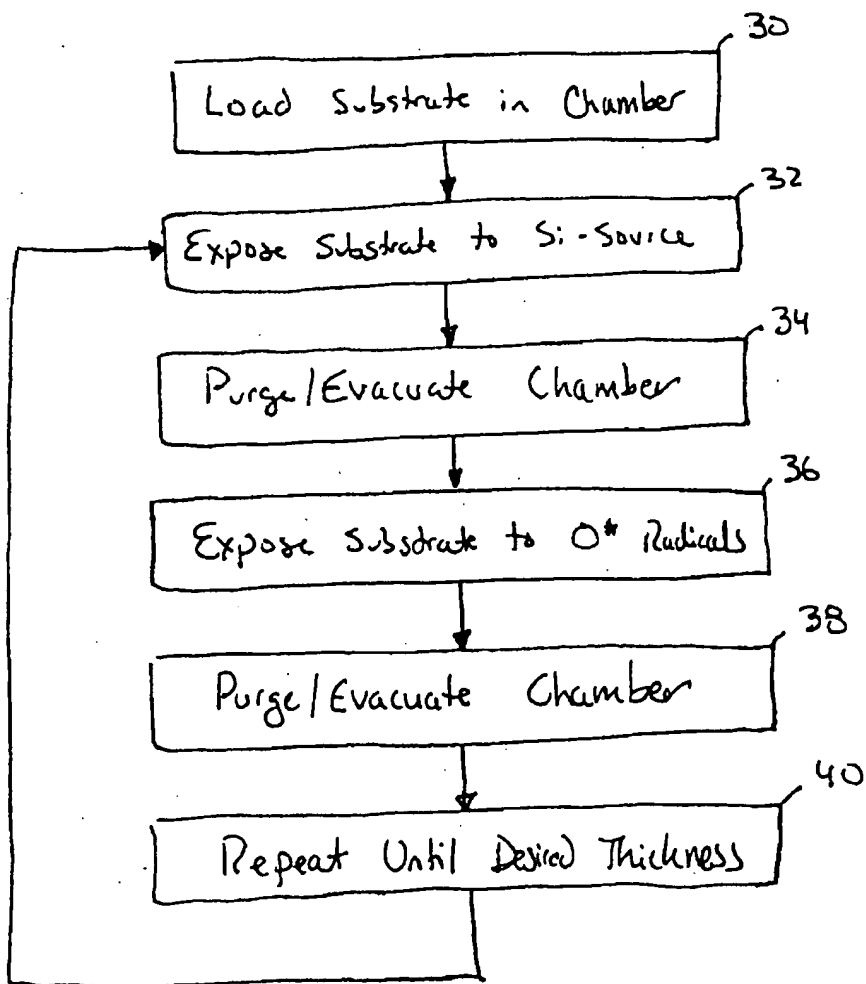 30
Load Substrate in Chamber
32
Expose Substrate to Si-Source
34
Purge/Evacuate Chamber
36
Expose Substrate to O* Radicals
38
Purge/Evacuate Chamber
40
Repeat Until Desired Thickness